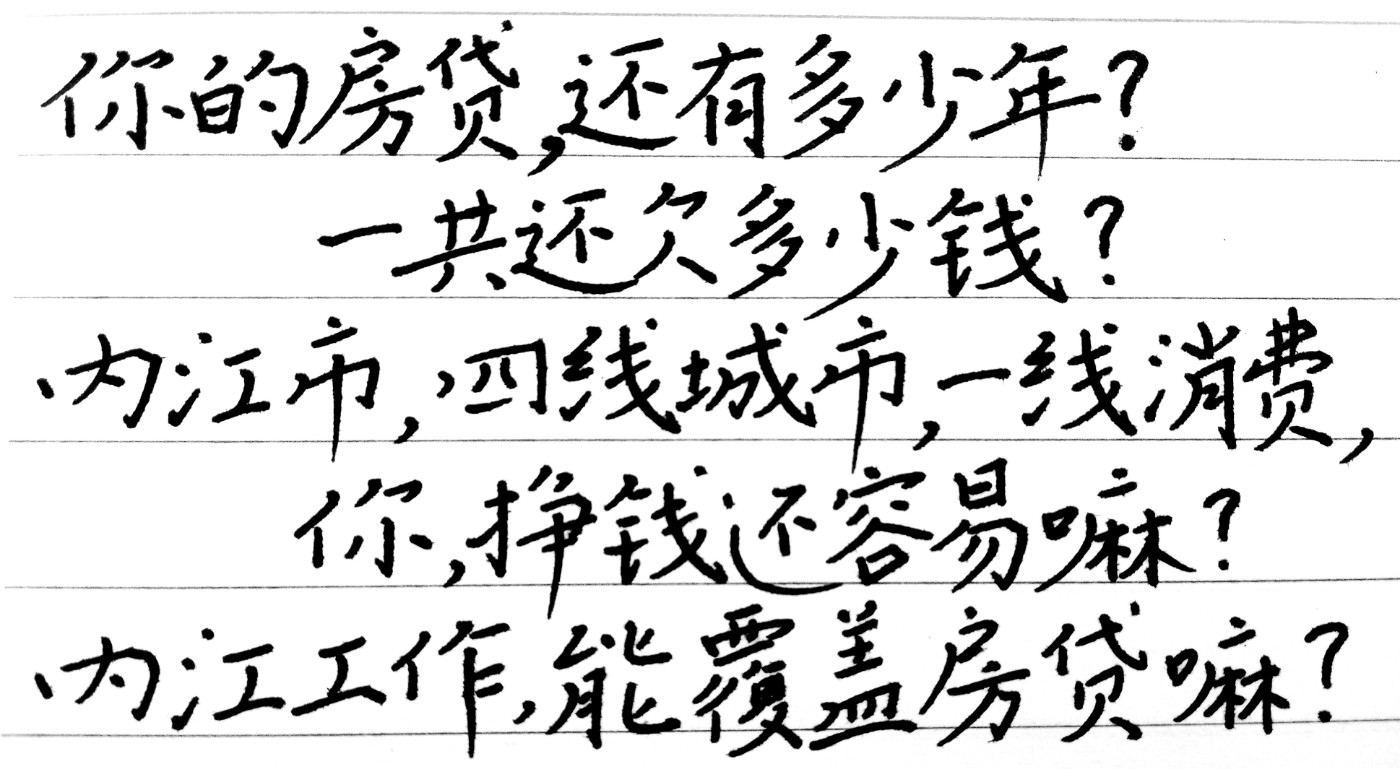 你的房贷,还有多少年?
一共还欠多少钱?
内江市,四线城市,一线消费,
你,挣钱还容易嘛?
内江工作,能覆盖房贷嘛?